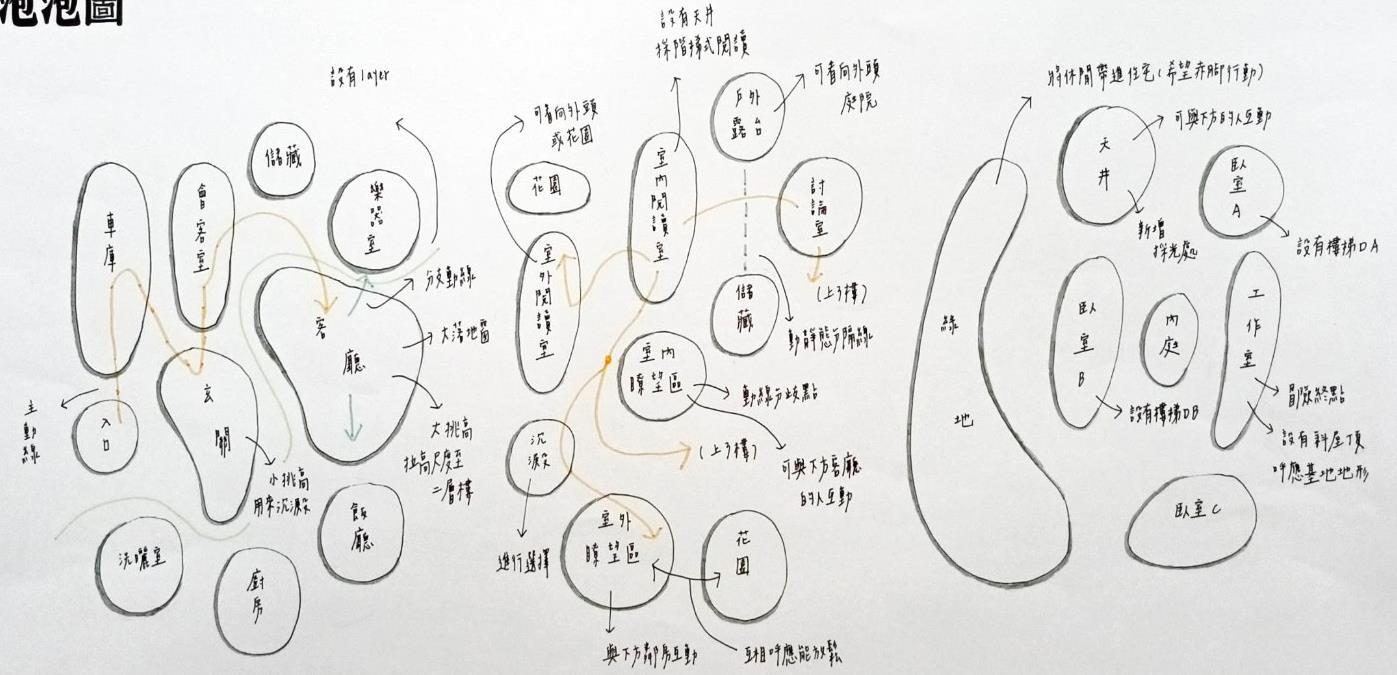 泡泡圖
設有layer
儲藏
車庫
會客室
樂器室
分支動線
客廳
大落地窗
大挑高
拉高尺度至
二層樓
主動線
入口
玄關
小挑高
用來沉澱
洗曬室
廚房
飯廳
設有天井
採階梯式閱讀
可看向外頭
或花園
花園
室外閱讀室
室內閱讀室
戶外
露台
可看向外頭
庭院
討論室
(上3樓)
儲藏
動靜態分隔線
室內
瞭望區
動線分歧點
(上3樓)
可與下方客廳
的人互動
沉澱
進行選擇
室外
瞭望區
與下方鄰居互動
花園
互相呼應能放鬆
將休閒帶進住宅(希望赤腳行動)
綠地
天井
可與下方的人互動
新增
採光處
臥室A
設有樓梯DA
臥室B
設有樓梯DB
內庭
工作室
冒險終點
設有斜屋頂
呼應基地地形
臥室C